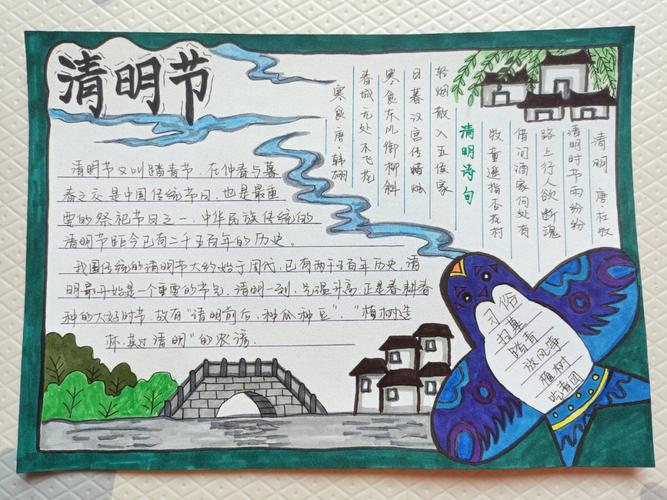 清明节
清明节又叫踏青节,在仲春与暮
春之交是中国传统节日,也是最重
要的祭祀节日之一,中华民族传统的
清明节距今已有二千五百年的历史。
我国传统的清明节大约始于周代,已有两千五百年历史,清
明最开始是一个重要的节气,清明一到,气温升高,正是春耕春
种的大好时节,故有"清明前后,种瓜种豆"."植树造
林,莫过清明"的农谚。
寒食 唐·韩翃
春城无处不飞花
寒食东风御柳斜
日暮汉宫传蜡烛
轻烟散入五侯家
清明诗句
清明 唐·杜牧
清明时节雨纷纷
路上行人欲断魂
借问酒家何处有
牧童遥指杏花村
习俗
扫墓
踏青
放风筝
植树
吃青团